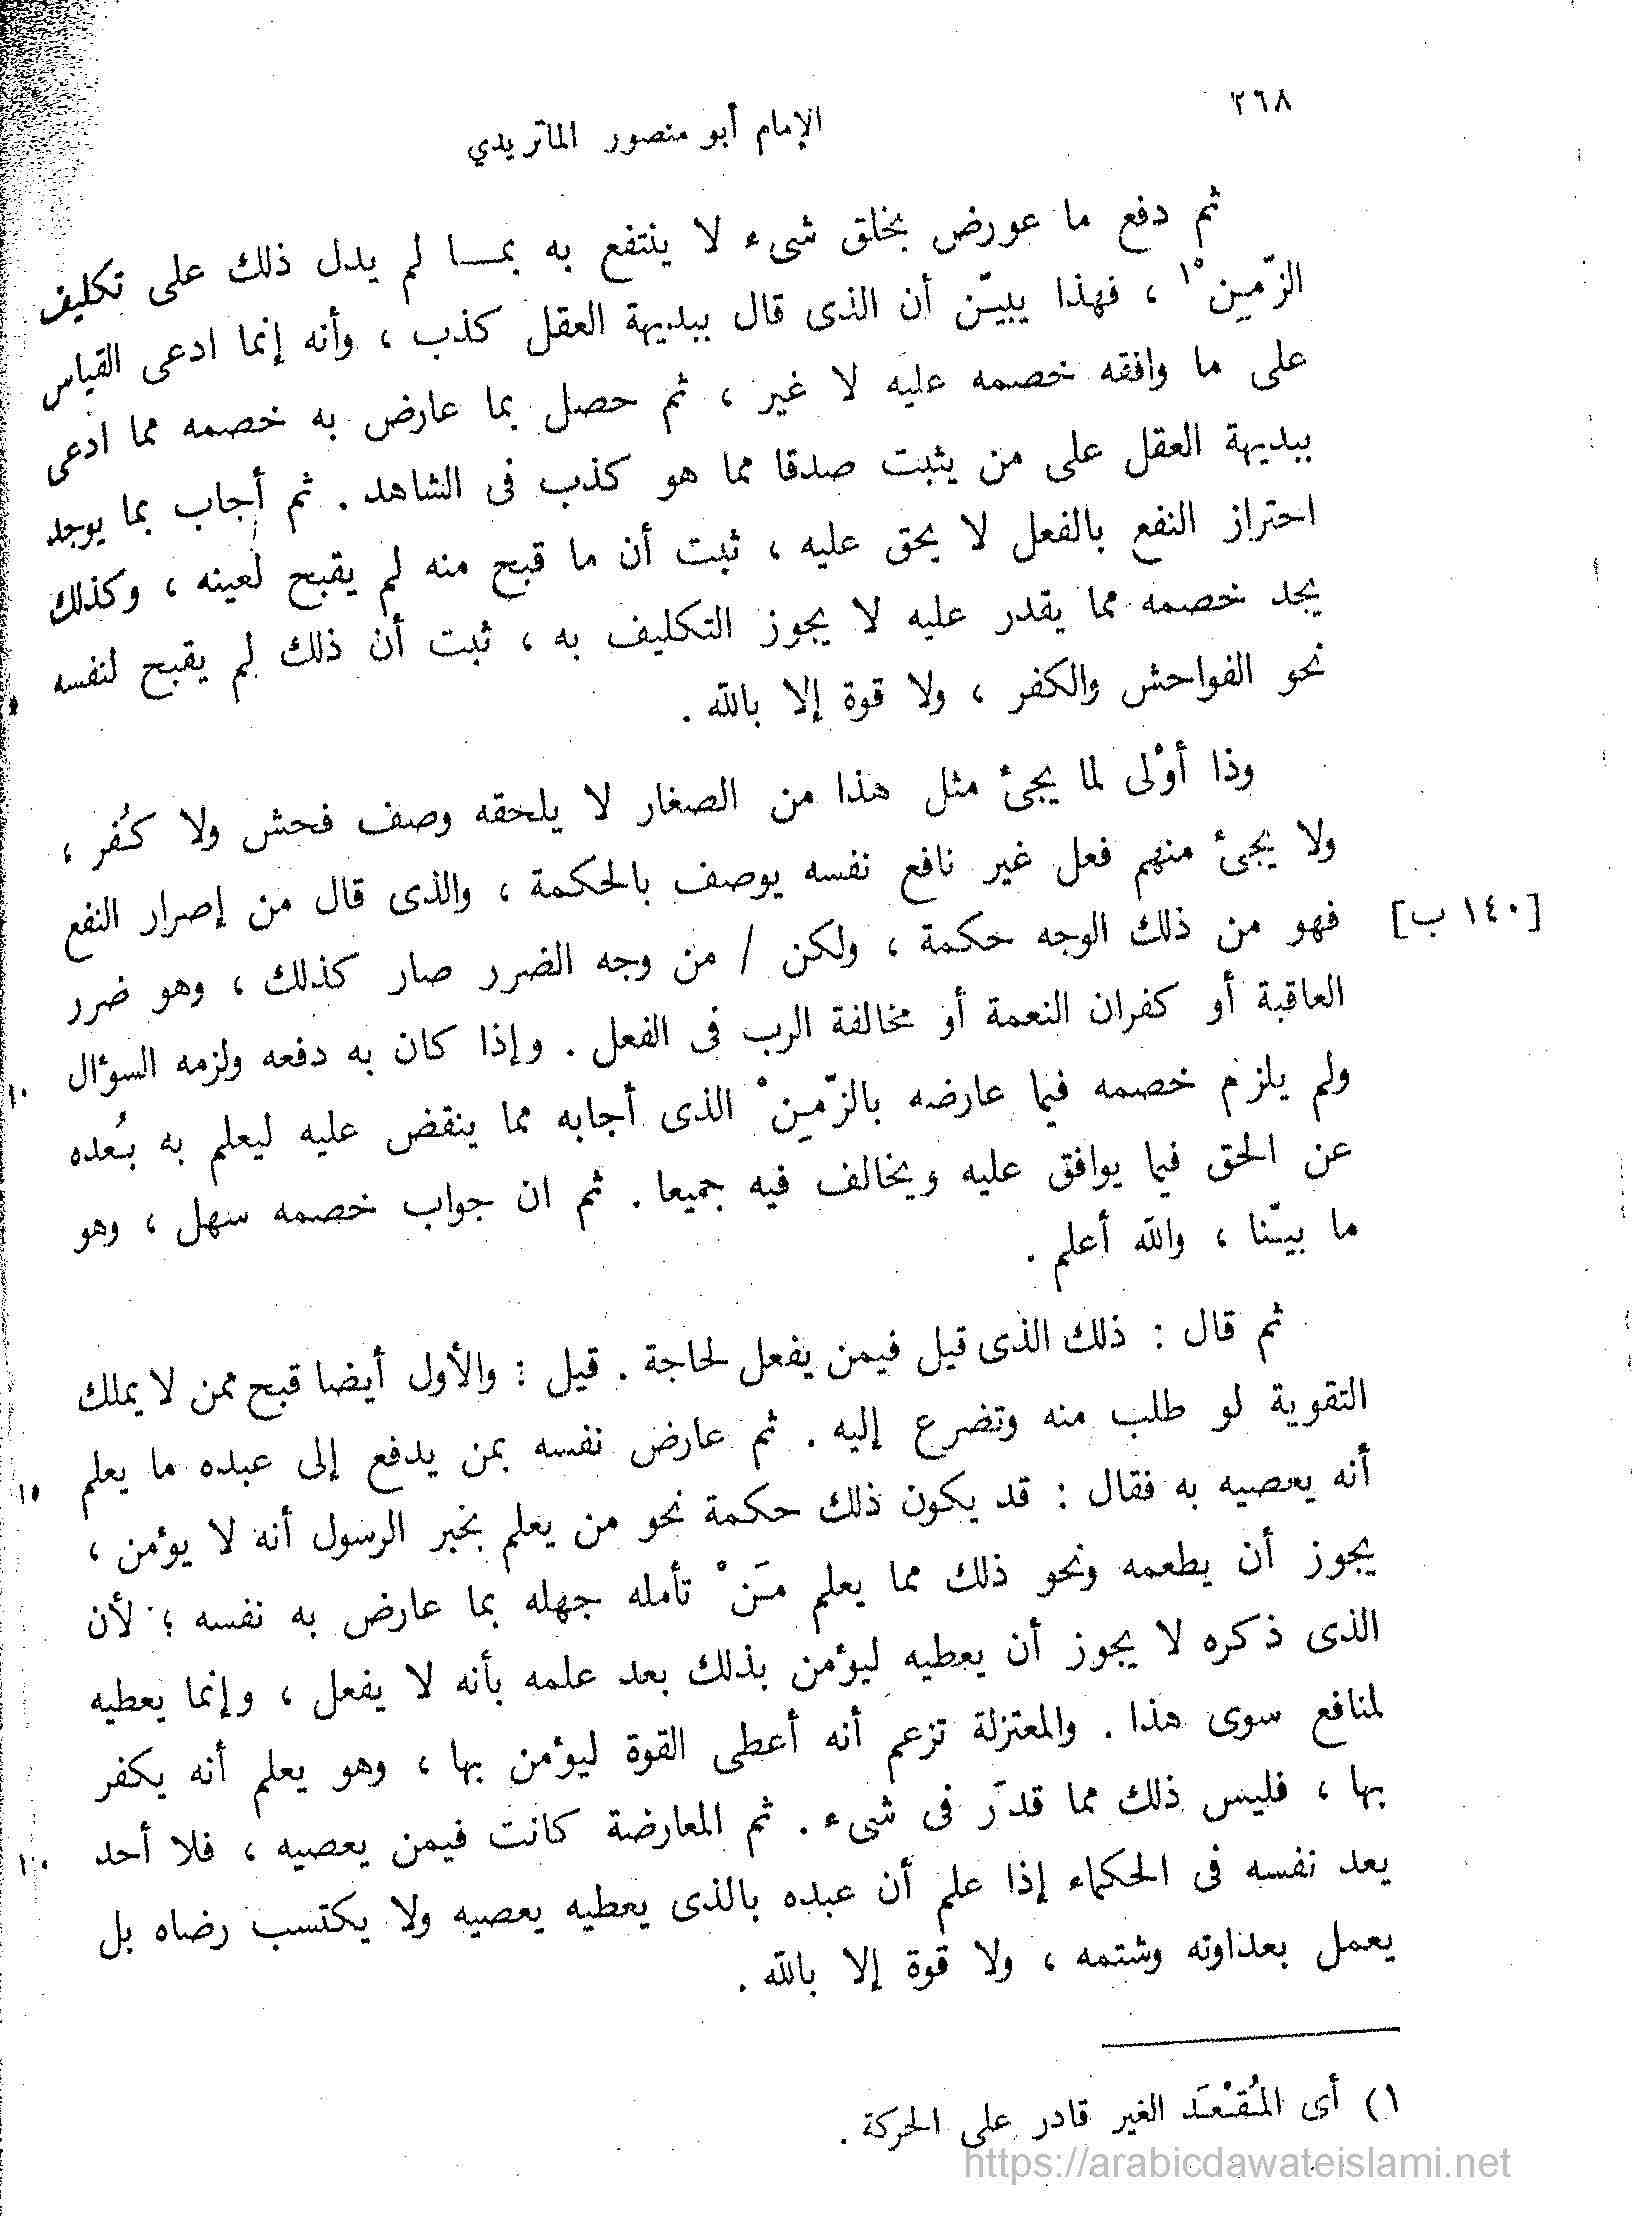 ٢٦٨
الإمام أبو منصور الماتريدي
ثم دفع ما عورض بخلق شىء لا ينتفع به بمـا لم يدل ذلك على تكليف
الزّمِين ْ١ ، فهذا يبيّن أن الذى قال ببديهة العقل كذب ، وأنه إنما ادعى القياس
على ما وافقه خصمه عليه لا غير ، ثم حصل بما عارض به خصمه مما ادعى
ببديهة العقل على من يثبت صدقا مما هو كذب فى الشاهد . ثم أجاب بما يوجد
احتراز النفع بالفعل لا يحق عليه ، ثبت أن ما قبح منه لم يقبح لعينه ، وكذلك
يجد خصمه مما يقدر عليه لا يجوز التكليف به ، ثبت أن ذلك لم يقبح لنفسه
نحو الفواحش والكفر ، ولا قوة إلا بالله .
وذا أوْلى لما يجئ مثل هذا من الصغار لا يلحقه وصف فحش ولا كُفر ،
ولا يجئ منهم فعل غير نافع نفسه يوصف بالحكمة ، والذى قال من إصرار النفع
[١٤٠ ب] فهو من ذلك الوجه حكمة ، ولكن / من وجه الضرر صار كذلك ، وهو ضرر
العاقبة أو كفران النعمة أو مخالفة الرب فى الفعل . وإذا كان به دفعه ولزمه السؤال ١٠
ولم يلزم خصمه فيما عارضه بالزّمِين ْ الذى أجابه مما ينقض عليه ليعلم به بُعده
عن الحق فيما يوافق عليه ويخالف فيه جميعا . ثم ان جواب خصمه سهل ، وهو
ما بيّنا ، والله أعلم .
ثم قال : ذلك الذى قيل فيمن يفعل لحاجة . قيل : والأول أيضا قبح ممن لا يملك
التقوية لو طلب منه وتضرع إليه . ثم عارض نفسه بمن يدفع إلى عبده ما يعلم
أنه يعصيه به فقال : قد يكون ذلك حكمة نحو من يعلم بخبر الرسول أنه لا يؤمن ، ١٥
يجوز أن يطعمه ونحو ذلك مما يعلم مَن ْ تأمله جهله بما عارض به نفسه ؛ لأن
الذى ذكره لا يجوز أن يعطيه ليؤمن بذلك بعد علمه بأنه لا يفعل ، وإنما يعطيه
لمنافع سوى هذا . والمعتزلة تزعم أنه أعطى القوة ليؤمن بها ، وهو يعلم أنه يكفر
بها ، فليس ذلك مما قدّر فى شىء . ثم المعارضة كانت فيمن يعصيه ، فلا أحد
يعد نفسه فى الحكماء إذا علم أن عبده بالذى يعطيه يعصيه ولا يكتسب رضاه بل
يعمل بعداوته وشتمه ، ولا قوة إلا بالله .
١) أى المُقْعَد الغير قادر على الحركة .
https://arabicdawateislami.net